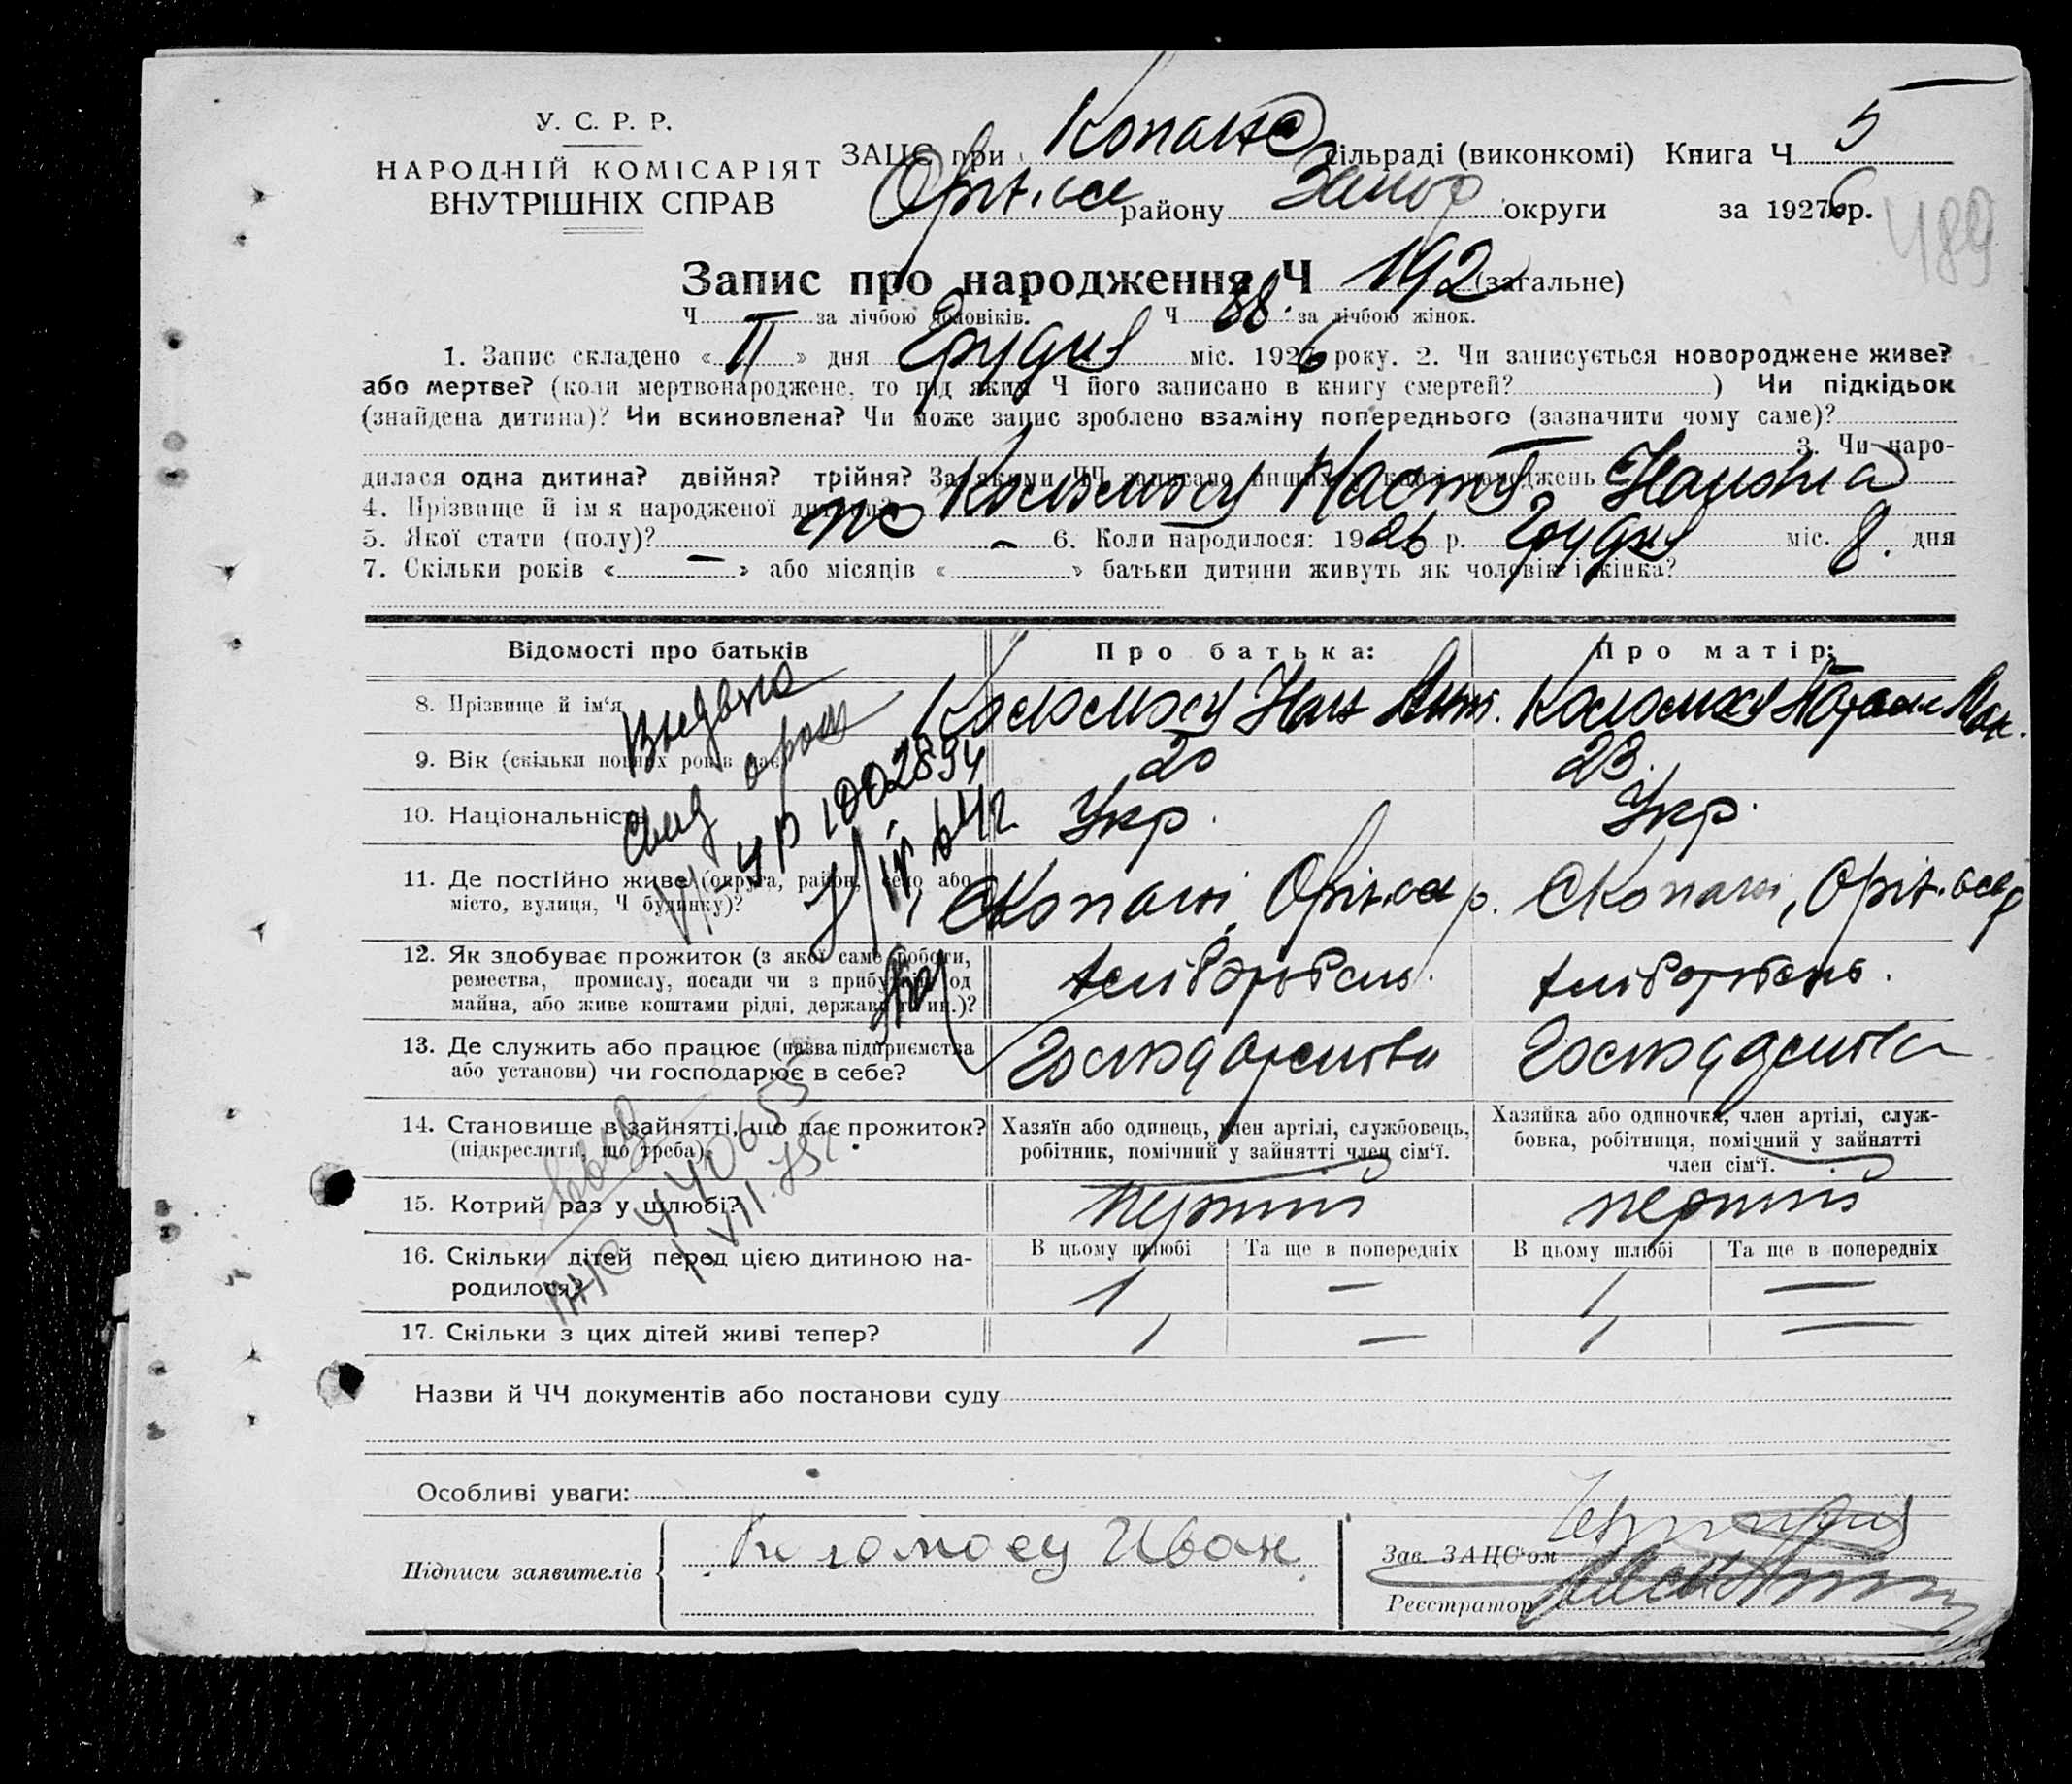 У. С. Р. Р.
НАРОДНІЙ КОМІСАРІЯТ
ВНУТРІШНІХ СПРАВ
ЗАЦС при Копанс сільраді (виконкомі) Книга Ч 5
Оріх.ос району Запор округи за 1926 р.
489
Запис про народження Ч 192 (загальне)
Ч за лічбою чоловіків. Ч 88. за лічбою жінок.
1. Запис складено « 11 » дня Грудня міс. 1926 року. 2. Чи записується новороджене живе?
або мертве? (коли мертвонароджене, то під яким Ч його записано в книгу смертей? ) Чи підкідьок
(знайдена дитина)? Чи всиновлена? Чи може запис зроблено взаміну попереднього (зазначити чому саме)?
3. Чи наро-
дилася одна дитина? двійня? трійня? За якими ЧЧ записано инших у книзі народжень
4. Прізвище й ім'я народженої дитини? Коломоєц Наст Іванівна
5. Якої стати (полу)? жо – 6. Коли народилося: 1926 р. Грудня міс. 8. дня
7. Скільки років « – » або місяців « » батьки дитини живуть як чоловік і жінка?
Відомості про батьків
Про батька:
Про матір:
8. Прізвище й ім'я
Коломоєц Іван
Коломоєц
9. Вік (скільки повних років має)
20
23.
10. Національність
Укр.
Укр.
11. Де постійно живе (округа, район, село або
місто, вулиця, Ч будинку)?
с Копані, Оріх.ос р.
с Копані, Оріх.ос р
12. Як здобуває прожиток (з якої саме роботи,
ремества, промислу, посади чи з прибутків од
майна, або живе коштами рідні, держави й ин.)?
хліборобень.
хліборобень.
13. Де служить або працює (назва підприємства
або установи) чи господарює в себе?
Господарства
Господарства
14. Становище в зайнятті, що дає прожиток?
(підкреслити, що треба).
Хазяїн або одинець, член артілі, службовець,
робітник, помічний у зайнятті член сім'ї.
Хазяйка або одиночка, член артілі, служ-
бовка, робітниця, помічний у зайнятті
член сім'ї.
15. Котрий раз у шлюбі?
перший
перший
16. Скільки дітей перед цією дитиною на-
родилося?
В цьому шлюбі Та ще в попередніх
В цьому шлюбі Та ще в попередніх
1 – 1 –
17. Скільки з цих дітей живі тепер?
1 – 1 –
Выдано
свид
УР 1002894
440655
Назви й ЧЧ документів або постанови суду
Особливі уваги:
Підписи заявителів
Коломоец Иван
Зав. ЗАЦС'ом
Реєстратор